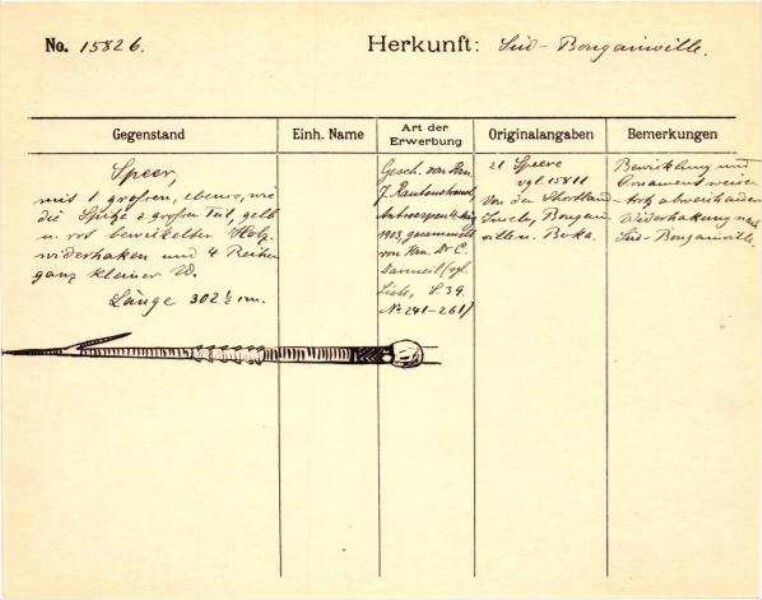 No. 15826.
Herkunft: Süd-Bougainville.
Gegenstand
Einh. Name
Art der Erwerbung
Originalangaben
Bemerkungen
Speer,
mit 1 großen, ebenso, wie
die Spitze z. großen Teil, gelb
u. rot bewickelter Holz-
widerhaken und 4 Reihen
ganz kleiner W.
Länge 302 ½ cm.
Gesch. von Hrn.
J. Rautenstrauch,
Antwerpen
1903, gesammelt
von Hrn. Dr C.
Danneil (vgl.
Liste, S. 39.
No 241-261)
21 Speere
vgl. 15811
Von den Shortland-
Inseln, Bougain-
ville u. Buka.
Bewicklung und
Ornament weisen
trotz abweichender
Widerhakung nach
Süd-Bougainville.